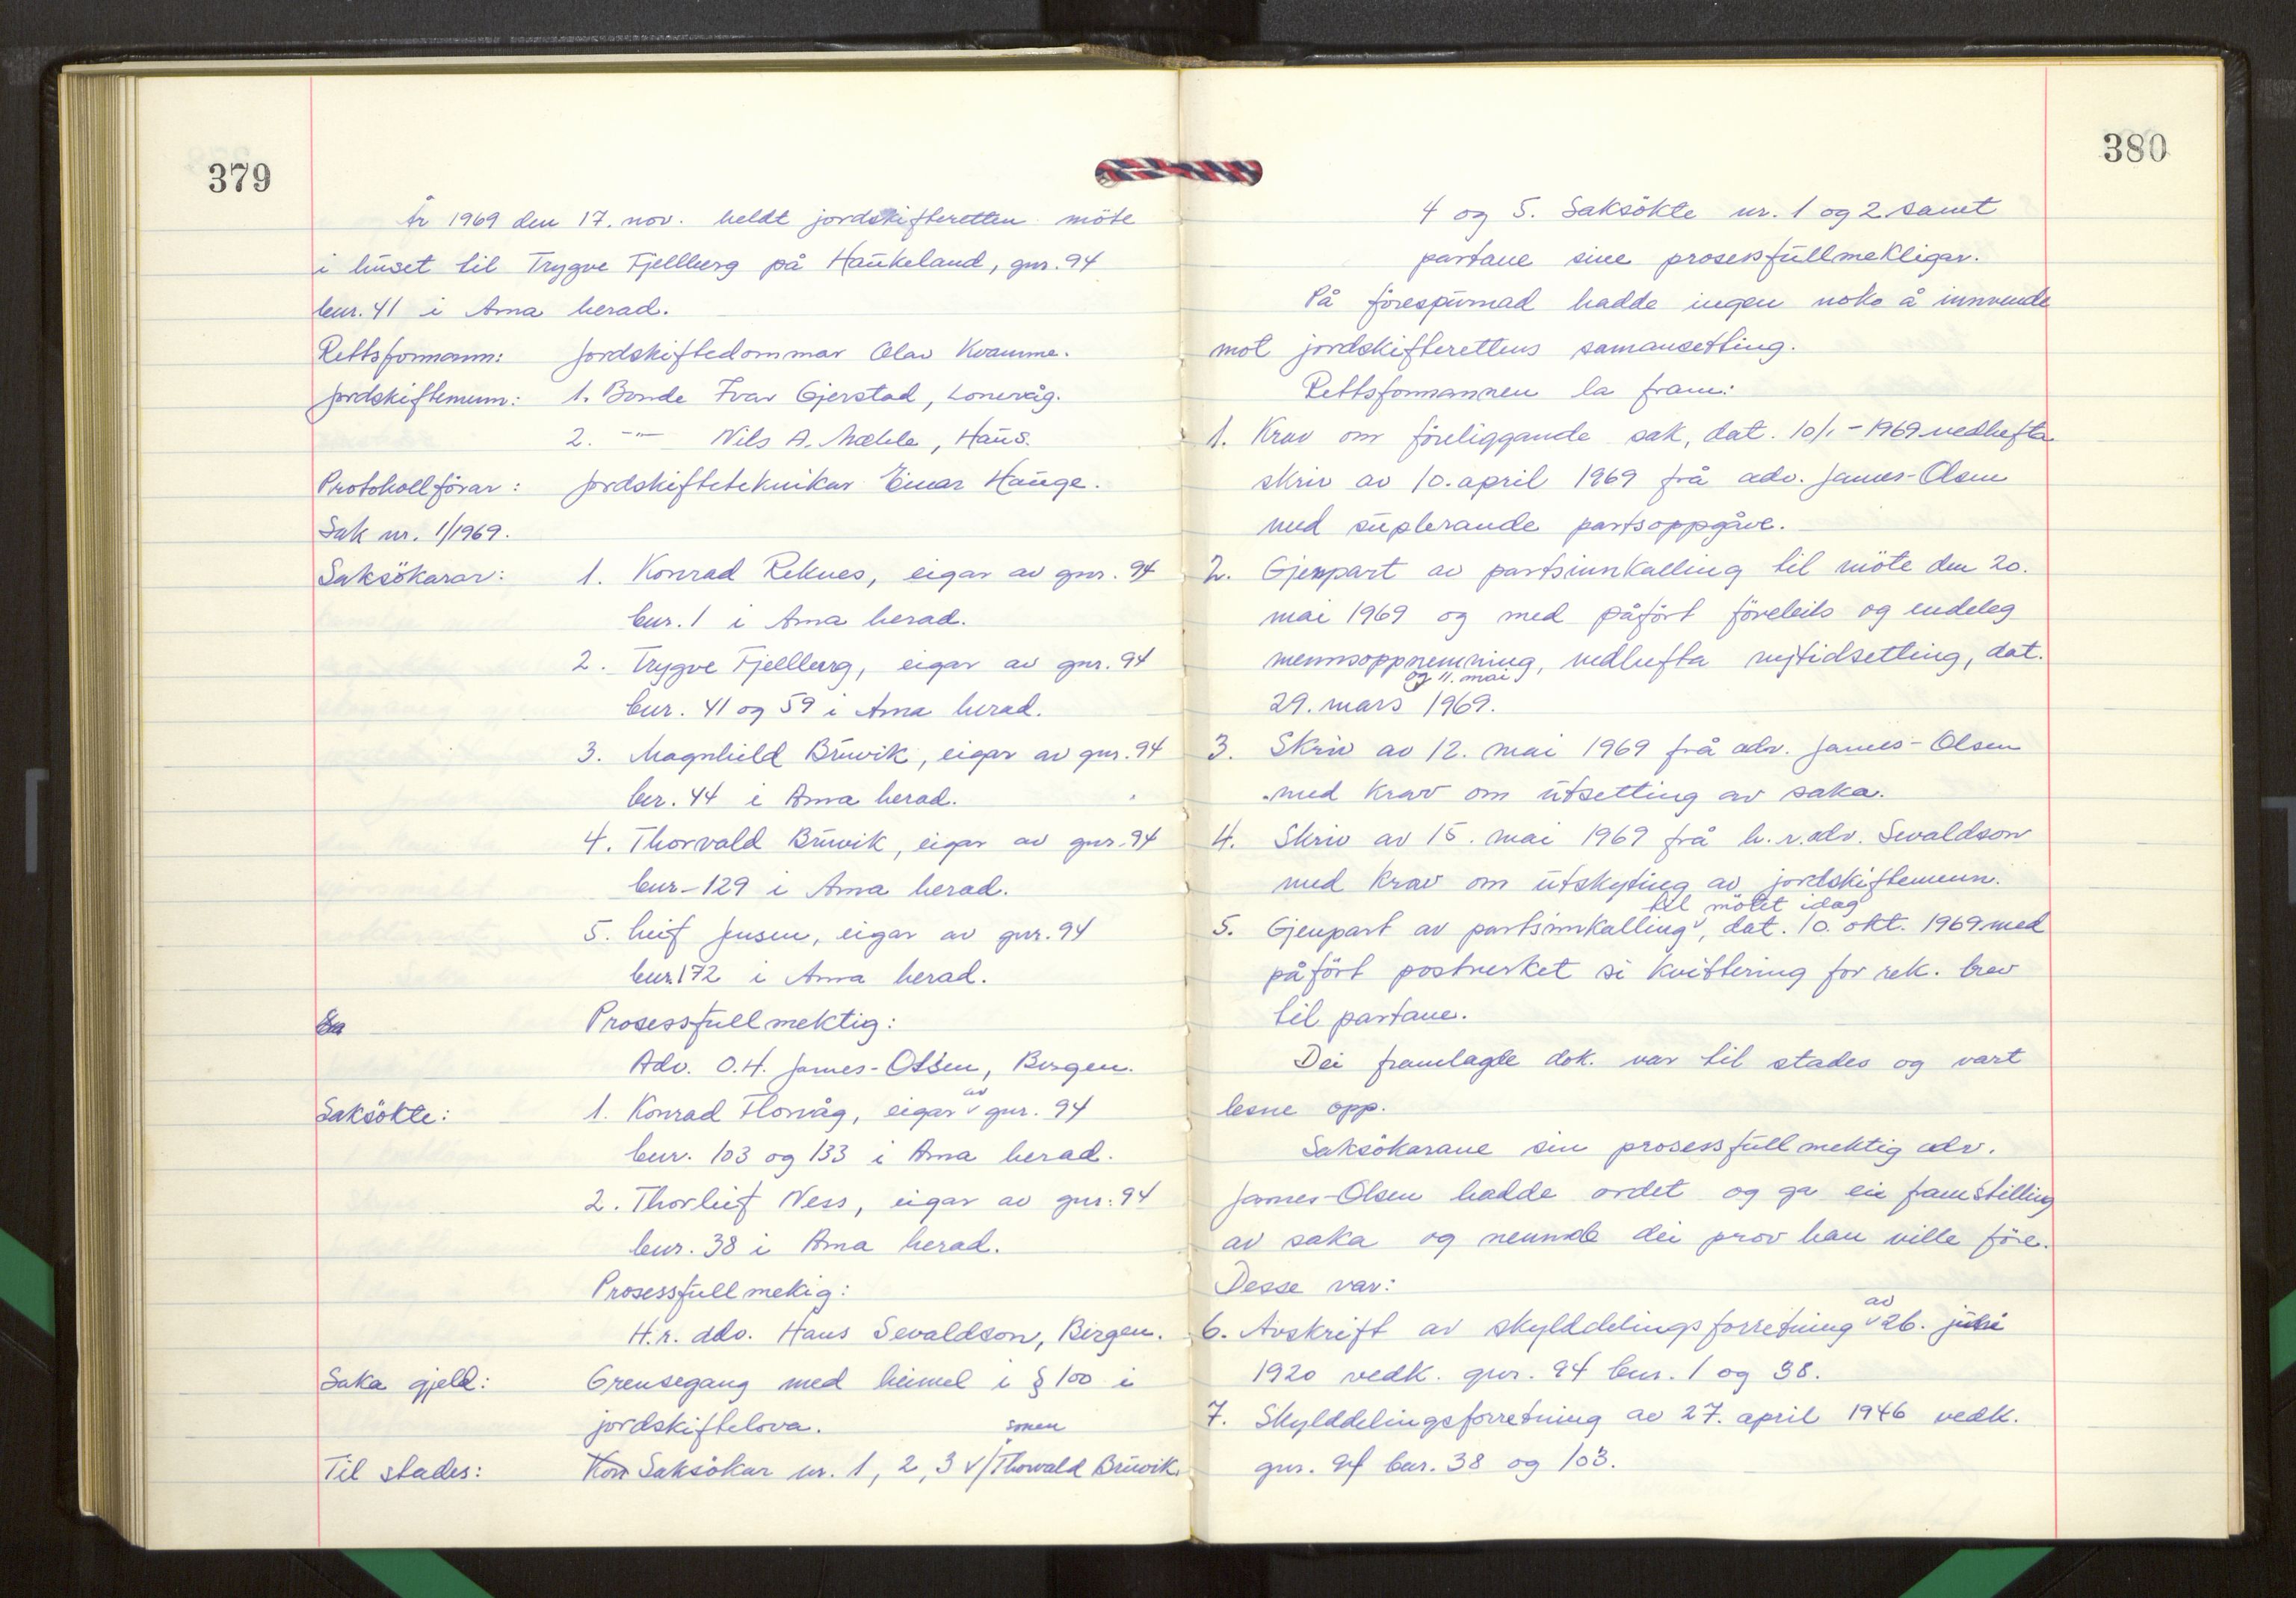 379
År 1969 den 17. nov. heldt jordskifteretten möte
i huset til Trygve Fjellberg på Haukeland, gnr. 94
bnr. 41 i Arna herad.
Rettsformann: Jordskiftedommar Olav Kvamme.
Jordskiftemenn: 1. Bonde Ivar Gjerstad, Lonevåg.
2. -"- Nils A. Mæhle, Haus.
Protokollförar: Jordskifteteknikar Einar Hauge.
Sak nr. 1/1969.
Saksökarar: 1. Konrad Reknes, eigar av gnr. 94
bnr. 1 i Arna herad.
2. Trygve Fjellberg, eigar av gnr. 94
bnr. 41 og 59 i Arna herad.
3. Magnhild Bruvik, eigar av gnr. 94
bnr. 44 i Arna herad.
4. Thorvald Bruvik, eigar av gnr. 94
bnr. 129 i Arna herad.
5. Leif Jensen, eigar av gnr. 94
bnr. 172 i Arna herad.
Prosessfullmektig:
Adv. O.H. James-Olsen, Bergen.
Saksökte: 1. Konrad Florvåg, eigar av gnr. 94
bnr. 103 og 133 i Arna herad.
2. Thorleif Ness, eigar av gnr. 94
bnr. 38 i Arna herad.
Prosessfullmekig:
H.r. adv. Hans Sevaldson, Bergen.
Saka gjeld: Grensegang med heimel i § 100 i
jordskiftelova.
Til stades: Kon Saksökar nr. 1, 2, 3 v/sonen Thorvald Bruvik,
380
4 og 5. Saksökte nr. 1 og 2 samt
partane sine prosessfullmekligar.
På förespurnad hadde ingen noko å innvende
mot jordskifterettens samansetting.
Rettsformannen la fram:
1. Krav om föreliggande sak, dat. 10/1 - 1969 vedhefta
skriv av 10. april 1969 frå adv. James-Olsen
med suplerande partsoppgåve.
2. Gjenpart av partsinnkalling til möte den 20.
mai 1969 og med påfört föreleils og endeleg
mennsoppnemning, vedhefta nytidsetting, dat.
29. mars og 11. mai 1969.
3. Skriv av 12. mai 1969 frå adv. James-Olsen
med krav om utsetting av saka.
4. Skriv av 15. mai 1969 frå h.r.adv. Sevaldson
med krav om utskyting av jordskiftemenn.
5. Gjenpart av partsinnkalling til mötet idag, dat. 10. okt. 1969 med
påfört postverket si kvittering for rek. brev
til partane.
Dei framlagde dok. var til stades og vart
lesne opp.
Saksökarane sin prosessfullmektig adv.
James-Olsen hadde ordet og ga ein famstilling
av saka og nemnde dei prov han ville före.
Desse var:
6. Avskrift av skylddelingsforretning av 26. juli
1920 vedk. gnr. 94 bnr. 1 og 38.
7. Skylddelingsforretning av 27. april 1946 vedk.
gnr. 94 bnr. 38 og 103.